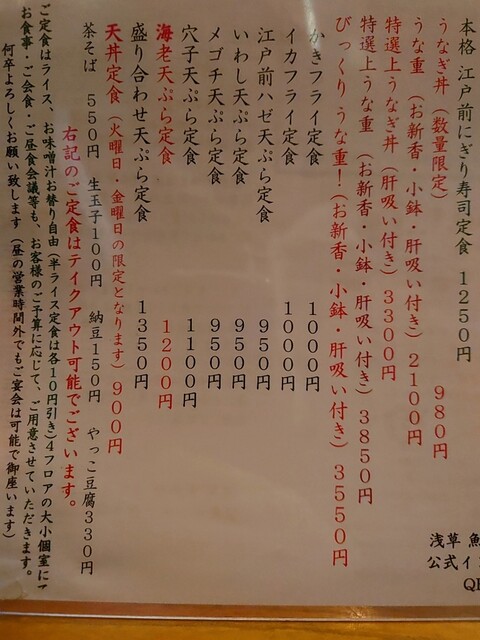 本格 江戸前にぎり寿司定食 1250円
うなぎ丼 (数量限定) 980円
うな重 (お新香・小鉢・肝吸い付き) 2100円
特選上うなぎ丼 (肝吸い付き) 3300円
特選上うな重 (お新香・小鉢・肝吸い付き) 3850円
びっくり うな重! (お新香・小鉢・肝吸い付き) 3550円
かきフライ定食 1000円
イカフライ定食 1000円
江戸前ハゼ天ぷら定食 950円
いわし天ぷら定食 950円
メゴチ天ぷら定食 950円
穴子天ぷら定食 1100円
海老天ぷら定食 1200円
盛り合わせ天ぷら定食 1350円
天丼定食 (火曜日・金曜日の限定となります) 900円
茶そば 550円 生玉子100円 納豆150円 やっこ豆腐330円
右記のご定食はテイクアウト可能でございます。
ご定食はライス、お味噌汁お替り自由(半ライス定食は各10円引き)4フロアの大小個室にて
お食事・ご会食・ご昼食会議等も、お客様のご予算に応じて、ご用意させていただきます。
何卒よろしくお願い致します (昼の営業時間外でもご宴会は可能で御座います)
浅草 魚
公式イ
QR